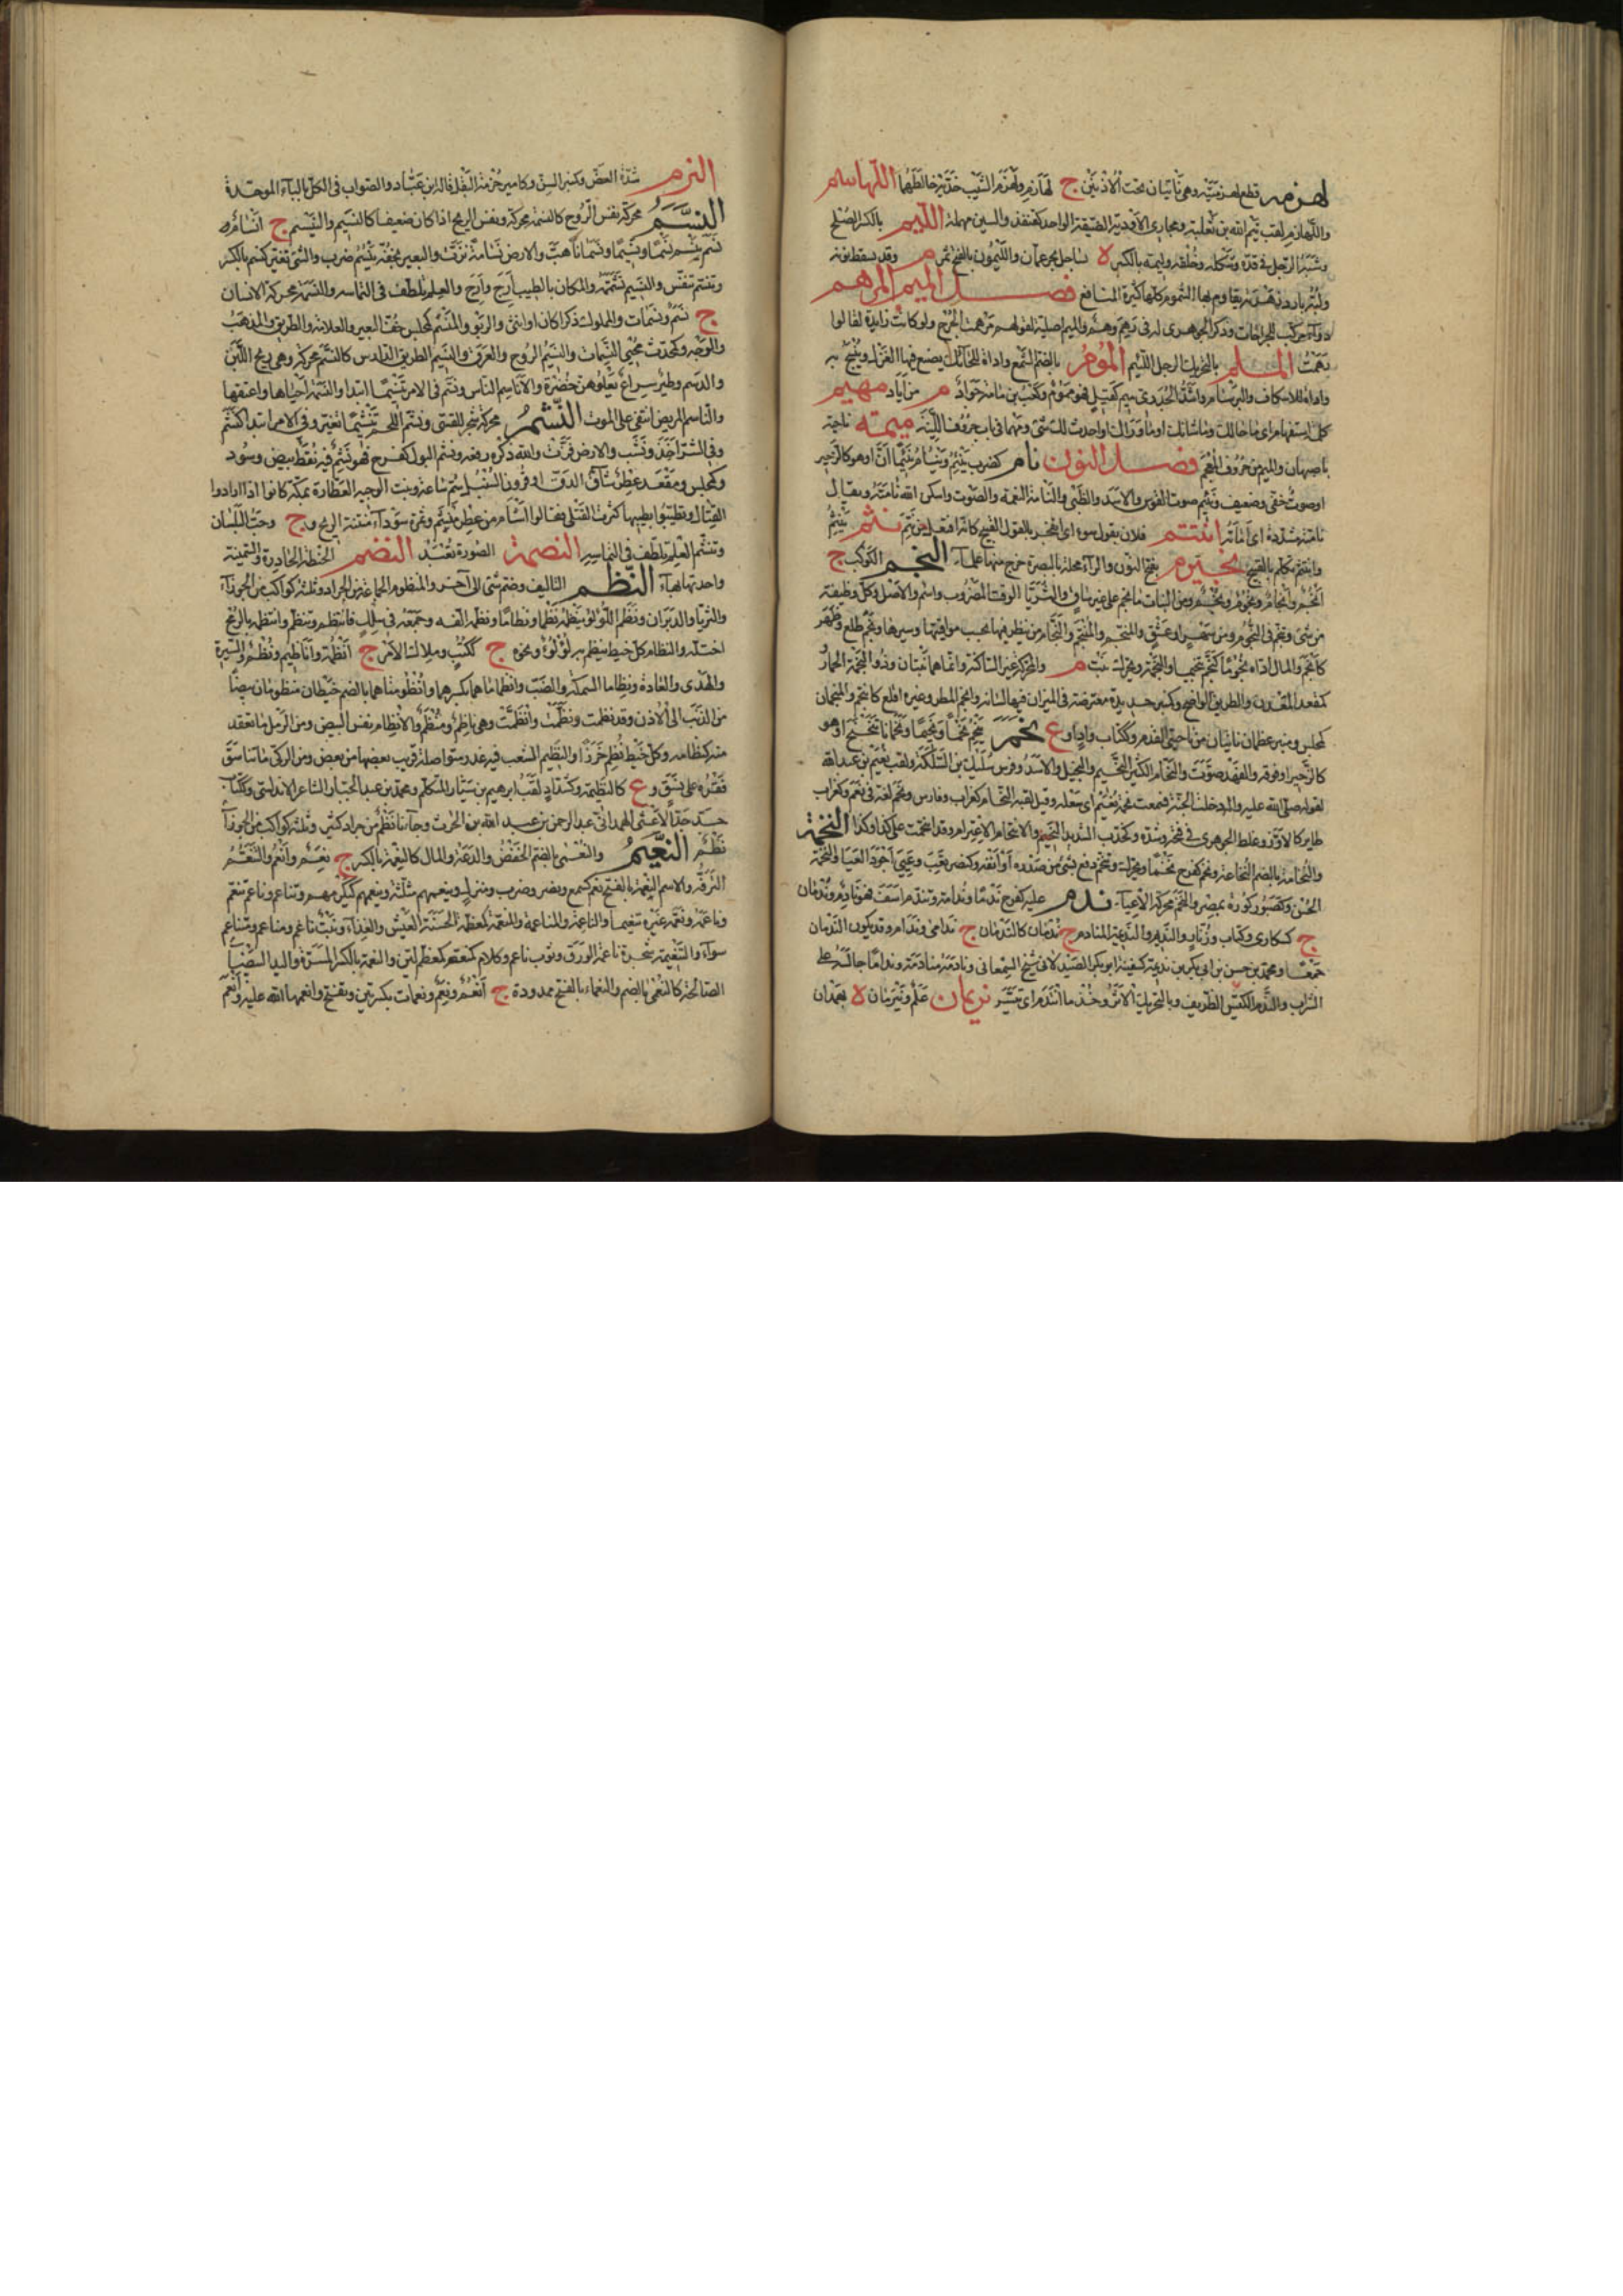 لهزمه قطع لهزمتيه وهي ناتيان تحت الاذنين ج لهازم ولهزم الشيب خديه خالطهما اللهاسم
واللهازم لقب تيم الله بن ثعلبة ومجاري الاودية الضيقة الواحد كقنفذ والسين مهملة الليم بالكسر الصلح
وشبه الرجل في قده وشكله وخلقه وليمة بالكسر ة بساحل بحر عمان والليمون بالفتح ثمر م وقد يسقط نونه
فصل الميم المرهم
دواء مركب للجراحات وذكر الجوهري له في رهم وهم والميم اصلية لقولهم مرهمت الجرح ولو كانت زايدة لقالوا
رهمت الملم بالتحريك الرجل اللئيم الموم بالضم الشمع واداة للحائك يضع فيها الغزل وينسج به
واداة للاسكاف والبرسام واشد الجدري ميم كقيل فهو مموم وكعب بن مامة جواد م من اياد مهيم
كلمة استفهام اي ما حالك وما شانك او ما وراك او احدث لك شيء ومهما في باب حروف اللينة ميمه ناحية
باصبهان والميم من حروف المعجم فصل النون نام كضرب ينئم وينام نئيما ان او هو كالزحير
او صوت خفي وضعيف ونئيم صوت القوس والاسد والظبي والنامة النغمة والصوت واسكن الله نامته ويقال
نامته مشددة اي اماته انتتم فلان بقول سوء اي انفجر بالقول القبيح كانه افتعل من نتم نثم ينثم
وانتثم تكلم بالقبيح نجيرم بفتح النون والراء محلة بالبصرة خرج منها علماء النجم الكوكب ج
انجم وانجام ونجوم ونجم ومن النبات ما نجم على غير ساق والثريا الوقت المضروب واسم والاصل وكل وظيفة
من شيء وتنجم رعى النجوم من سهر او عشق والمنجم والمتنجم والنجام من ينظر فيها بحسب مواقيتها وسيرها ونجم طلع وظهر
كانجم والمال اداه نجوما كنجم تنجيما والنجمة ويحرك نبت م والمحركة غير الساكنة وانما هما نبتان وذو النجمة الحمار
كمقعد المعدن والطريق الواضح وكمنبر حديدة معترضة في الميزان فيها لسانه وانجم المطر وغيره اقلع كانتجم والمنجمان
كمجلس ومنبر عظمان ناتيان من ناحيتي القدم وككتاب واد او ع نحم ينحم نحما ونحيما ونحمانا تنحنح او هو
كالزحير او فوقه والفهد صوت والنحام الكثير النحيم والبخيل والاسد وفرس سليك بن السلكة ولقب نعيم بن عبدالله
لقوله صلى الله عليه وسلم دخلت الجنة فسمعت نحمة نعيم اي سعلة وقيل لقبه النحام كغراب وفارس ونحم لغة في نعم وكغراب
طاير كالاوز وغلط الجوهري في فتحه وشده وكخدب الشديد النحيم والانتحام الاعتزام وقد انتحمت على كذا وكذا النخمة
والنخامة بالضم النخاعة ونخم كفرح نخما ويحرك وتنخم دفع بشيء من صدره او انفه وكنصر لعب وغنى اجود الغناء والنخمة
الحسن وكصبور كورة بمصر والنخم محركة الاعياء ندم عليه كفرح ندما وندامة وتندم اسف فهو نادم وندمان
ج كسكارى وكتاب وزنار والنديم والنديمة المنادم ج ندمان كالندمان ج ندامى وندام وقد يكون الندمان
جمعا ومحمد بن حسن بن ابي بكر بن نديمة كسفينة ابو بكر الصيدلاني شيخ السمعاني ونادمه منادمة ونداما جالسه على
الشراب والندم الكيس الظريف وبالتحريك الاثر وخذ ما انتدم اي تيسر نريمان علم ونيرمان ة بهمدان
النزم شدة العض وكمنبر السن وكامير حزمة البقل قاله ابن عباد والصواب في الكل بالباء الموحدة
النسم محركة نفس الروح كالنسمة محركة ونفس الريح اذا كان ضعيفا كالنسيم والنيسم ج انسام
نسم ينسم نسما ونسيما ونسمانا هب والارض نسامة نزت والبعير بخفه ينسم ضرب والشيء تغير كنسم بالكسر
وتنسم تنفس والنسيم تشممه والمكان بالطيب ارج وارج والعلم تلطف في التماسه والنسمة محركة الانسان
ج نسم ونسمات والمملوك ذكرا كان او انثى والربو والمنسم كمجلس خف البعير والعلامة والطريق والمذهب
والوجه وكمحدث محيي النسمات والنسيم الروح والعرق والنيسم الطريق الدارس كالنسم محركة وهي ريح اللبن
والدسم وطير سراع تعلوهن خضرة والاناسم الناس ونسم في الامر تنسيما ابتدا والنسمة احياها واعتقها
والناسم المريض اشفى على الموت النشم محركة شجر للقسي ونشم اللحم تنشيما تغير وفي الامر ابتدا كنشم
وفي الشر اخذ ونشب والارض نزت والله ذكره رفعه ونشم الثور كفرح فهو نشم فيه نقط بيض وسود
وكمجلس ومقعد عطر شاق الدق او قرون السنبل سم ساعة وبنت الوجيه العطارة بمكة كانوا اذا ارادوا
القتال وتطيبوا بطيبها كثرت القتلى فقالوا اشام من عطر منشم وثمرة سوداء منتنة الريح و ج وحب البلسان
وتنشم العلم تلطف في التماسه النصمة الصورة تعبد النضم الحنطة الحادرة والسمينة
واحدتها بهاء النظم التاليف وضم شيء الى آخر والمنظوم والجماعة من الجراد وثلثة كواكب من الجوزاء
والثريا والدبران ونظم اللؤلؤ ينظمه نظما ونظاما ونظمه الفه وجمعه في سلك فانتظم وتنظم وانتظمه بالرمح
اختله والنظام كل خيط ينظم به لؤلؤ ونحوه ج ككتب وملاك الامر ج انظمة واناظيم ونظم والسيرة
والهدي والعادة ونظاما السمكة والضب وانظاماهما بكسرهما وانظومتاهما بالضم خيطان منظومان بيضا
من الذنب الى الاذن وقد نظمت ونظمت وانظمت وهي ناظم ومنظم والانظام نفس البيض ومن الرمل ما تعقد
منه كنظامه وكل خيط نظم خرزا والنظيم الشعب فيه غدر متواصلة قريب بعضها من بعض ومن الركي ما تناسق
فقره على نسق و ع كالنظيمة وكشداد لقب ابراهيم بن سيار المتكلم ومحمد بن عبد الجبار الشاعر الاندلسي وككتاب
جد جد الاعشى الهمداني عبد الرحمن بن عبد الله بن الحرث وجاءنا نظم من جراد كثير وثلثة كواكب من الجوزاء
نظم النعيم والنعمى بالضم الخفض والدعة والمال كالنعمة بالكسر ج نعم وانعم والتنعم
الترفه والاسم النعمة بالفتح نعم كسمع ونصر وضرب ومنزل ينعمهم مثلثة وينعمهم كيكرمهم وتناعم وناعم تنعم
وناعمه ونعمه غيره تنعيما والناعمة والمناعمة والمنعمة كمعظمة الحسنة العيش والغذاء ونبت ناعم ومناعم ومتناعم
سواء والتنعيمة شجرة ناعمة الورق وثوب ناعم وكلام منعم كمعظم لين والنعمة بالكسر المسرة واليد البيضاء
الصالحة كالنعمى بالضم والنعماء بالفتح ممدودة ج انعم ونعم ونعمات بكسرتين وتفتح وانعمها الله عليه وانعم